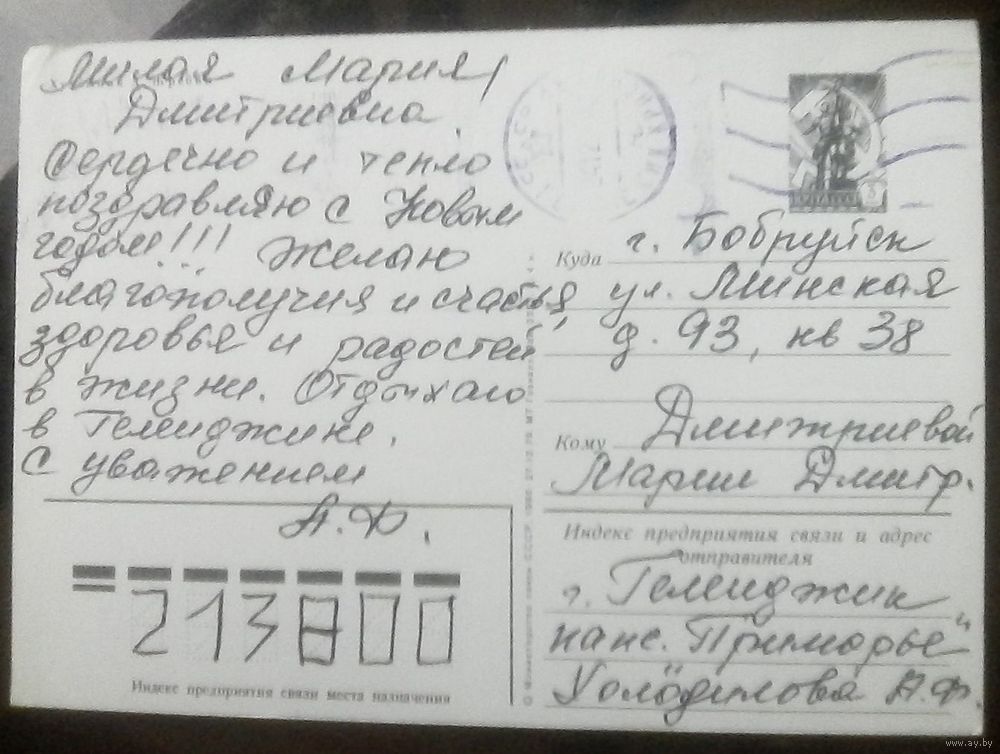 Милая Мария
Дмитриевна,
Сердечно и тепло
поздравляю с Новым
годом!!! Желаю
благополучия и счастья,
здоровья и радостей
в жизни. Отдыхаю
в Геленджике.
С уважением
А.Ф.
Куда г. Бобруйск
ул. Минская
д. 93, кв 38
Кому Дмитриевой
Марии Дмитр.
Индекс предприятия связи и адрес
отправителя
г. Геленджик
панс. "Приморье"
А.Ф.
213800
Индекс предприятия связи места назначения
www.ay.by